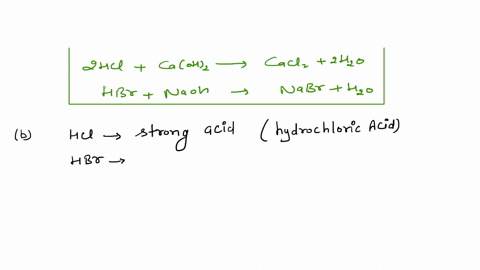 2HCl + Ca(OH)₂ → CaCl₂ + 2H₂O
HBr + NaOH → NaBr + H₂O
(b) HCl → strong acid (hydrochloric Acid)
HBr →